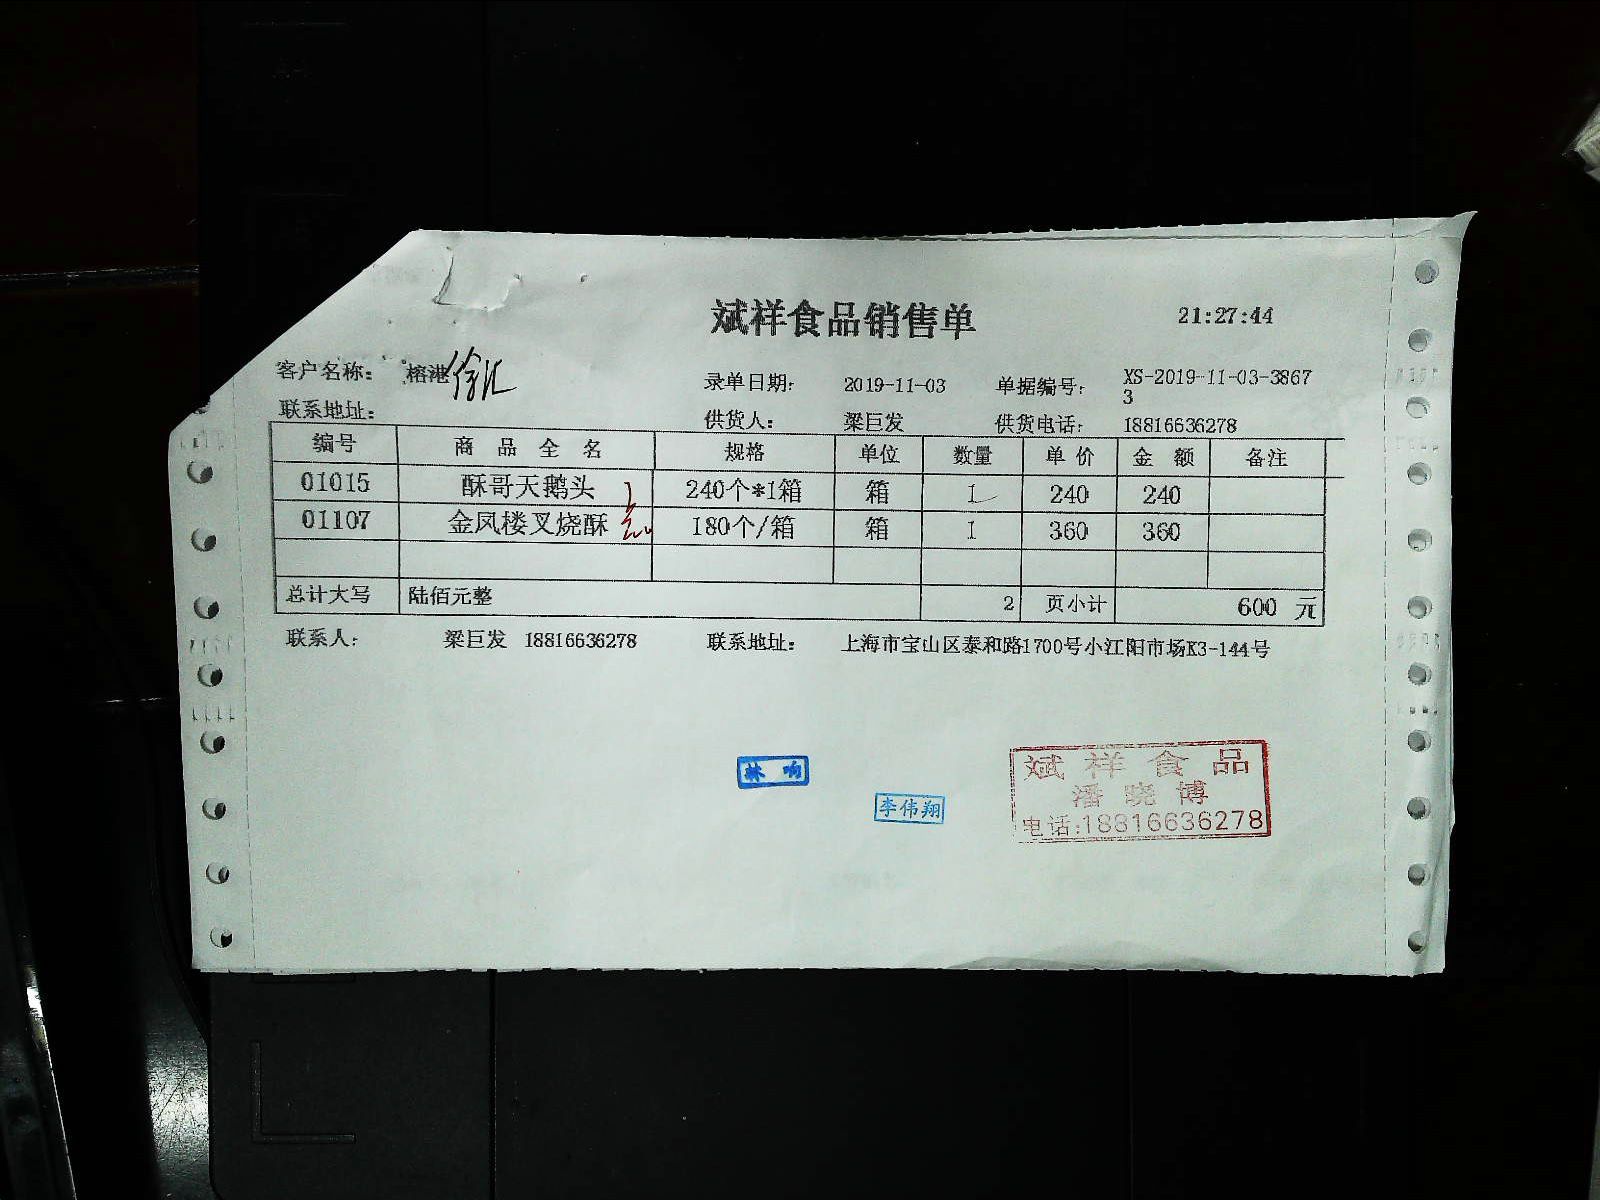 斌祥食品销售单 21:27:44
客户名称： 榕港徐汇 录单日期： 2019-11-03 单据编号： XS-2019-11-03-3867
3
联系地址： 供货人： 梁巨发 供货电话： 18816636278
编号 商品全名 规格 单位 数量 单价 金额 备注
01015 酥哥天鹅头 240个*1箱 箱 1 240 240
01107 金凤楼叉烧酥 180个/箱 箱 1 360 360
总计大写 陆佰元整 2 页小计 600 元
联系人： 梁巨发 18816636278 联系地址： 上海市宝山区泰和路1700号小江阳市场K3-144号
林响
李伟翔
斌祥食品
潘晓博
电话:18816636278